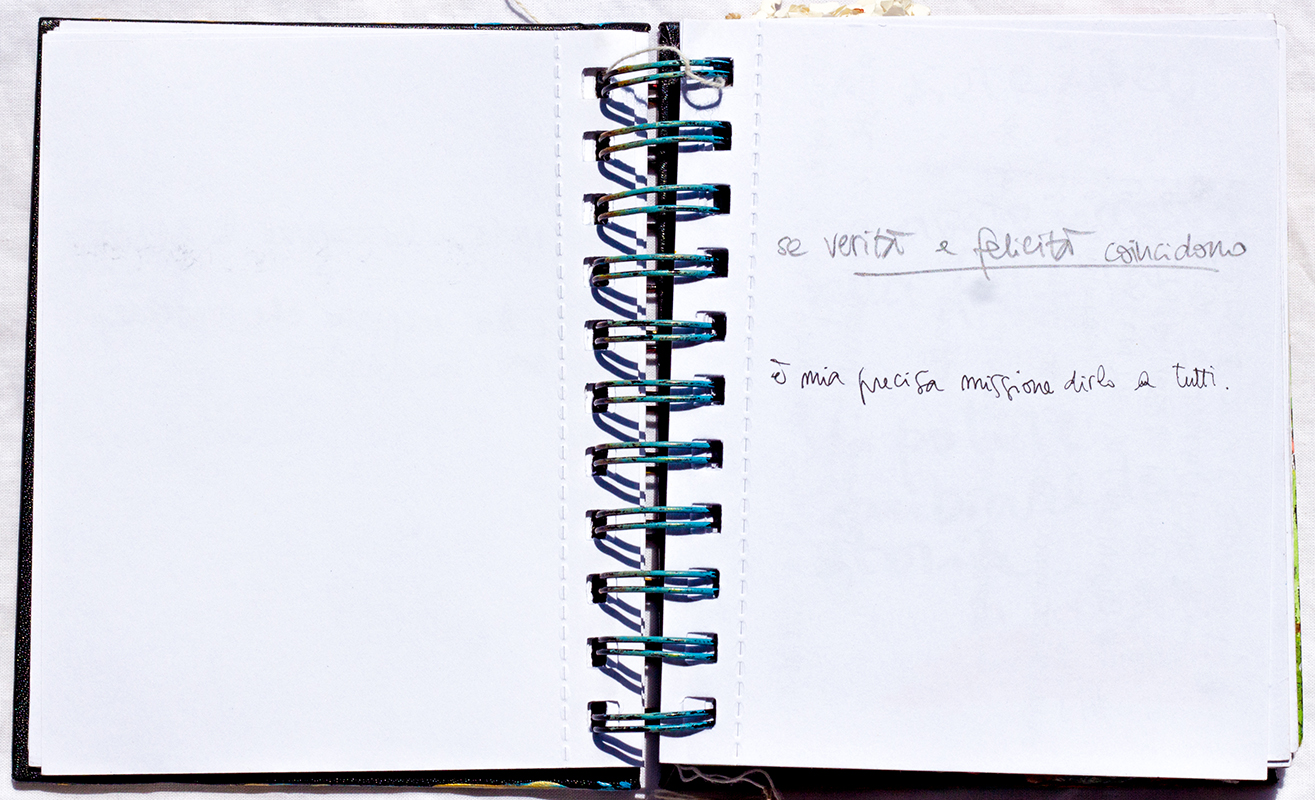 se verità e felicità coincidono
è mia precisa missione dirlo a tutti.